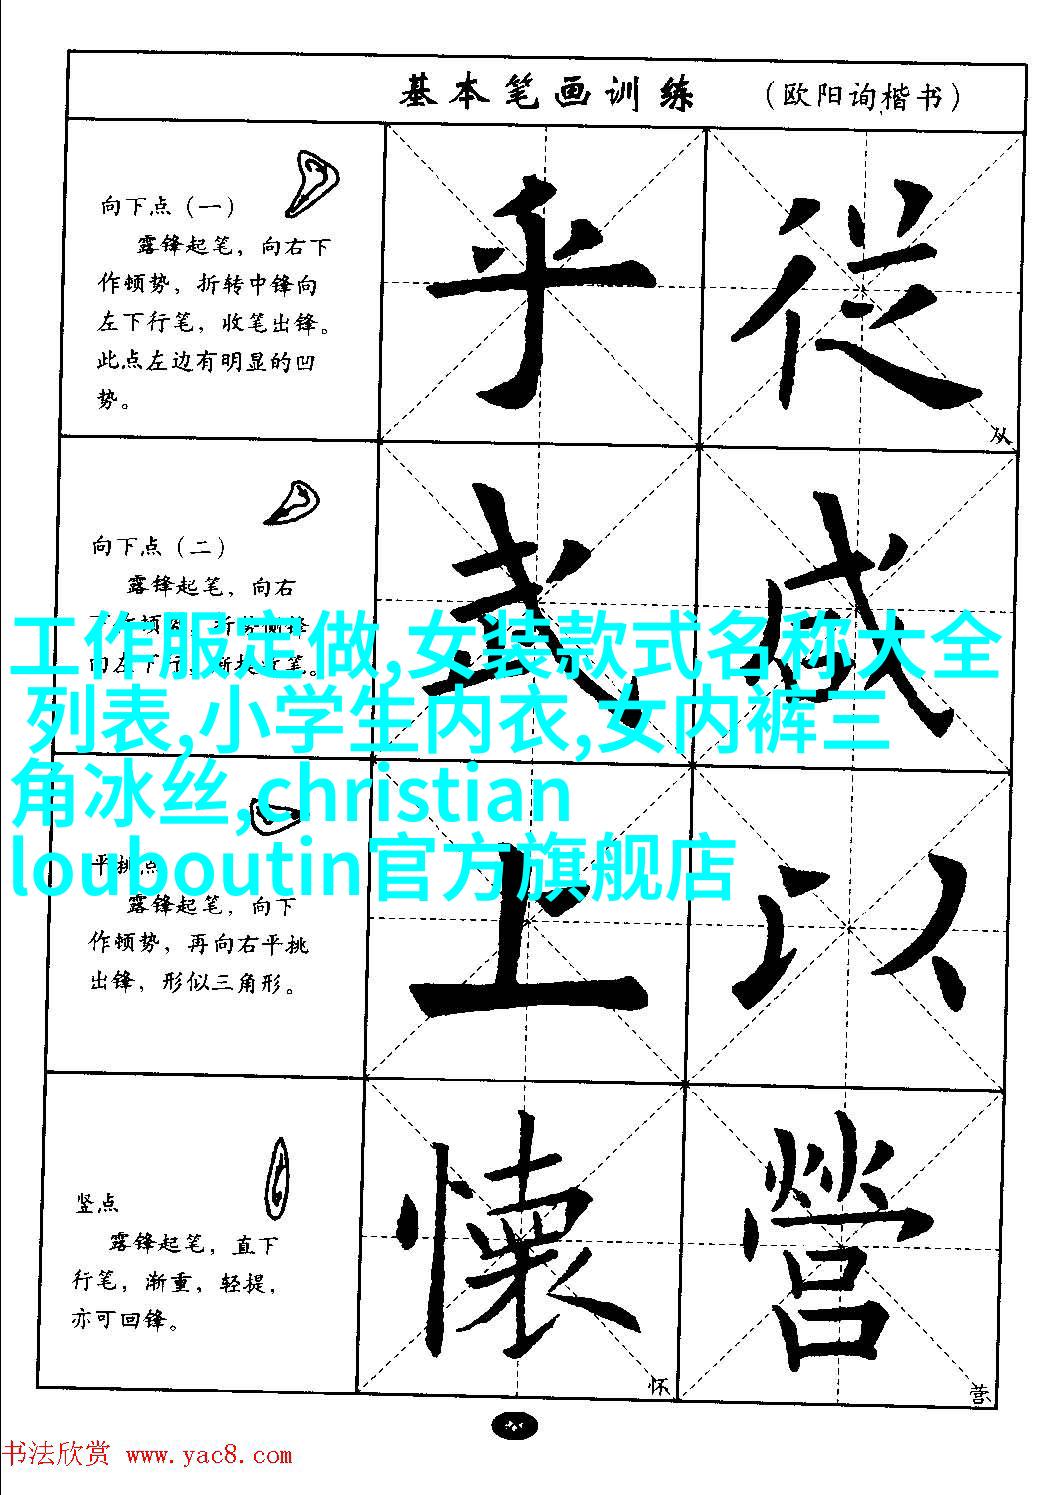 基本笔画训练 （欧阳询楷书）
向下点（一）
露锋起笔，向右下
作顿势，折转中锋向
左下行笔，收笔出锋。
此点左边有明显的凹
势。
乎 從
从
向下点（二）
露锋起笔，向右
式 感
工作服定做,女装款式名称大全
列表,小学生内衣,女内裤三
角冰丝,christian
louboutin官方旗舰店
平挑点
露锋起笔，向下
作顿势，再向右平挑
出锋，形似三角形。
上 以
竖点
露锋起笔，直下
行笔，渐重，轻提，
亦可回锋。
懷 營
怀 营
书法欣赏 www.yac8.com